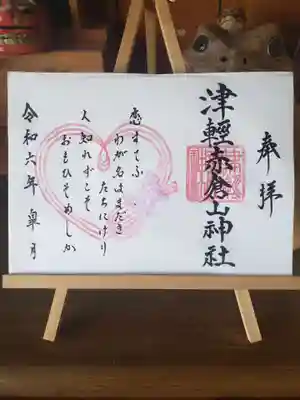 奉拝
津輕赤倉山神社
恋すてふ
わが名はまだき
たちにけり
人知れずこそ
おもひそめしか
令和六年 皐月